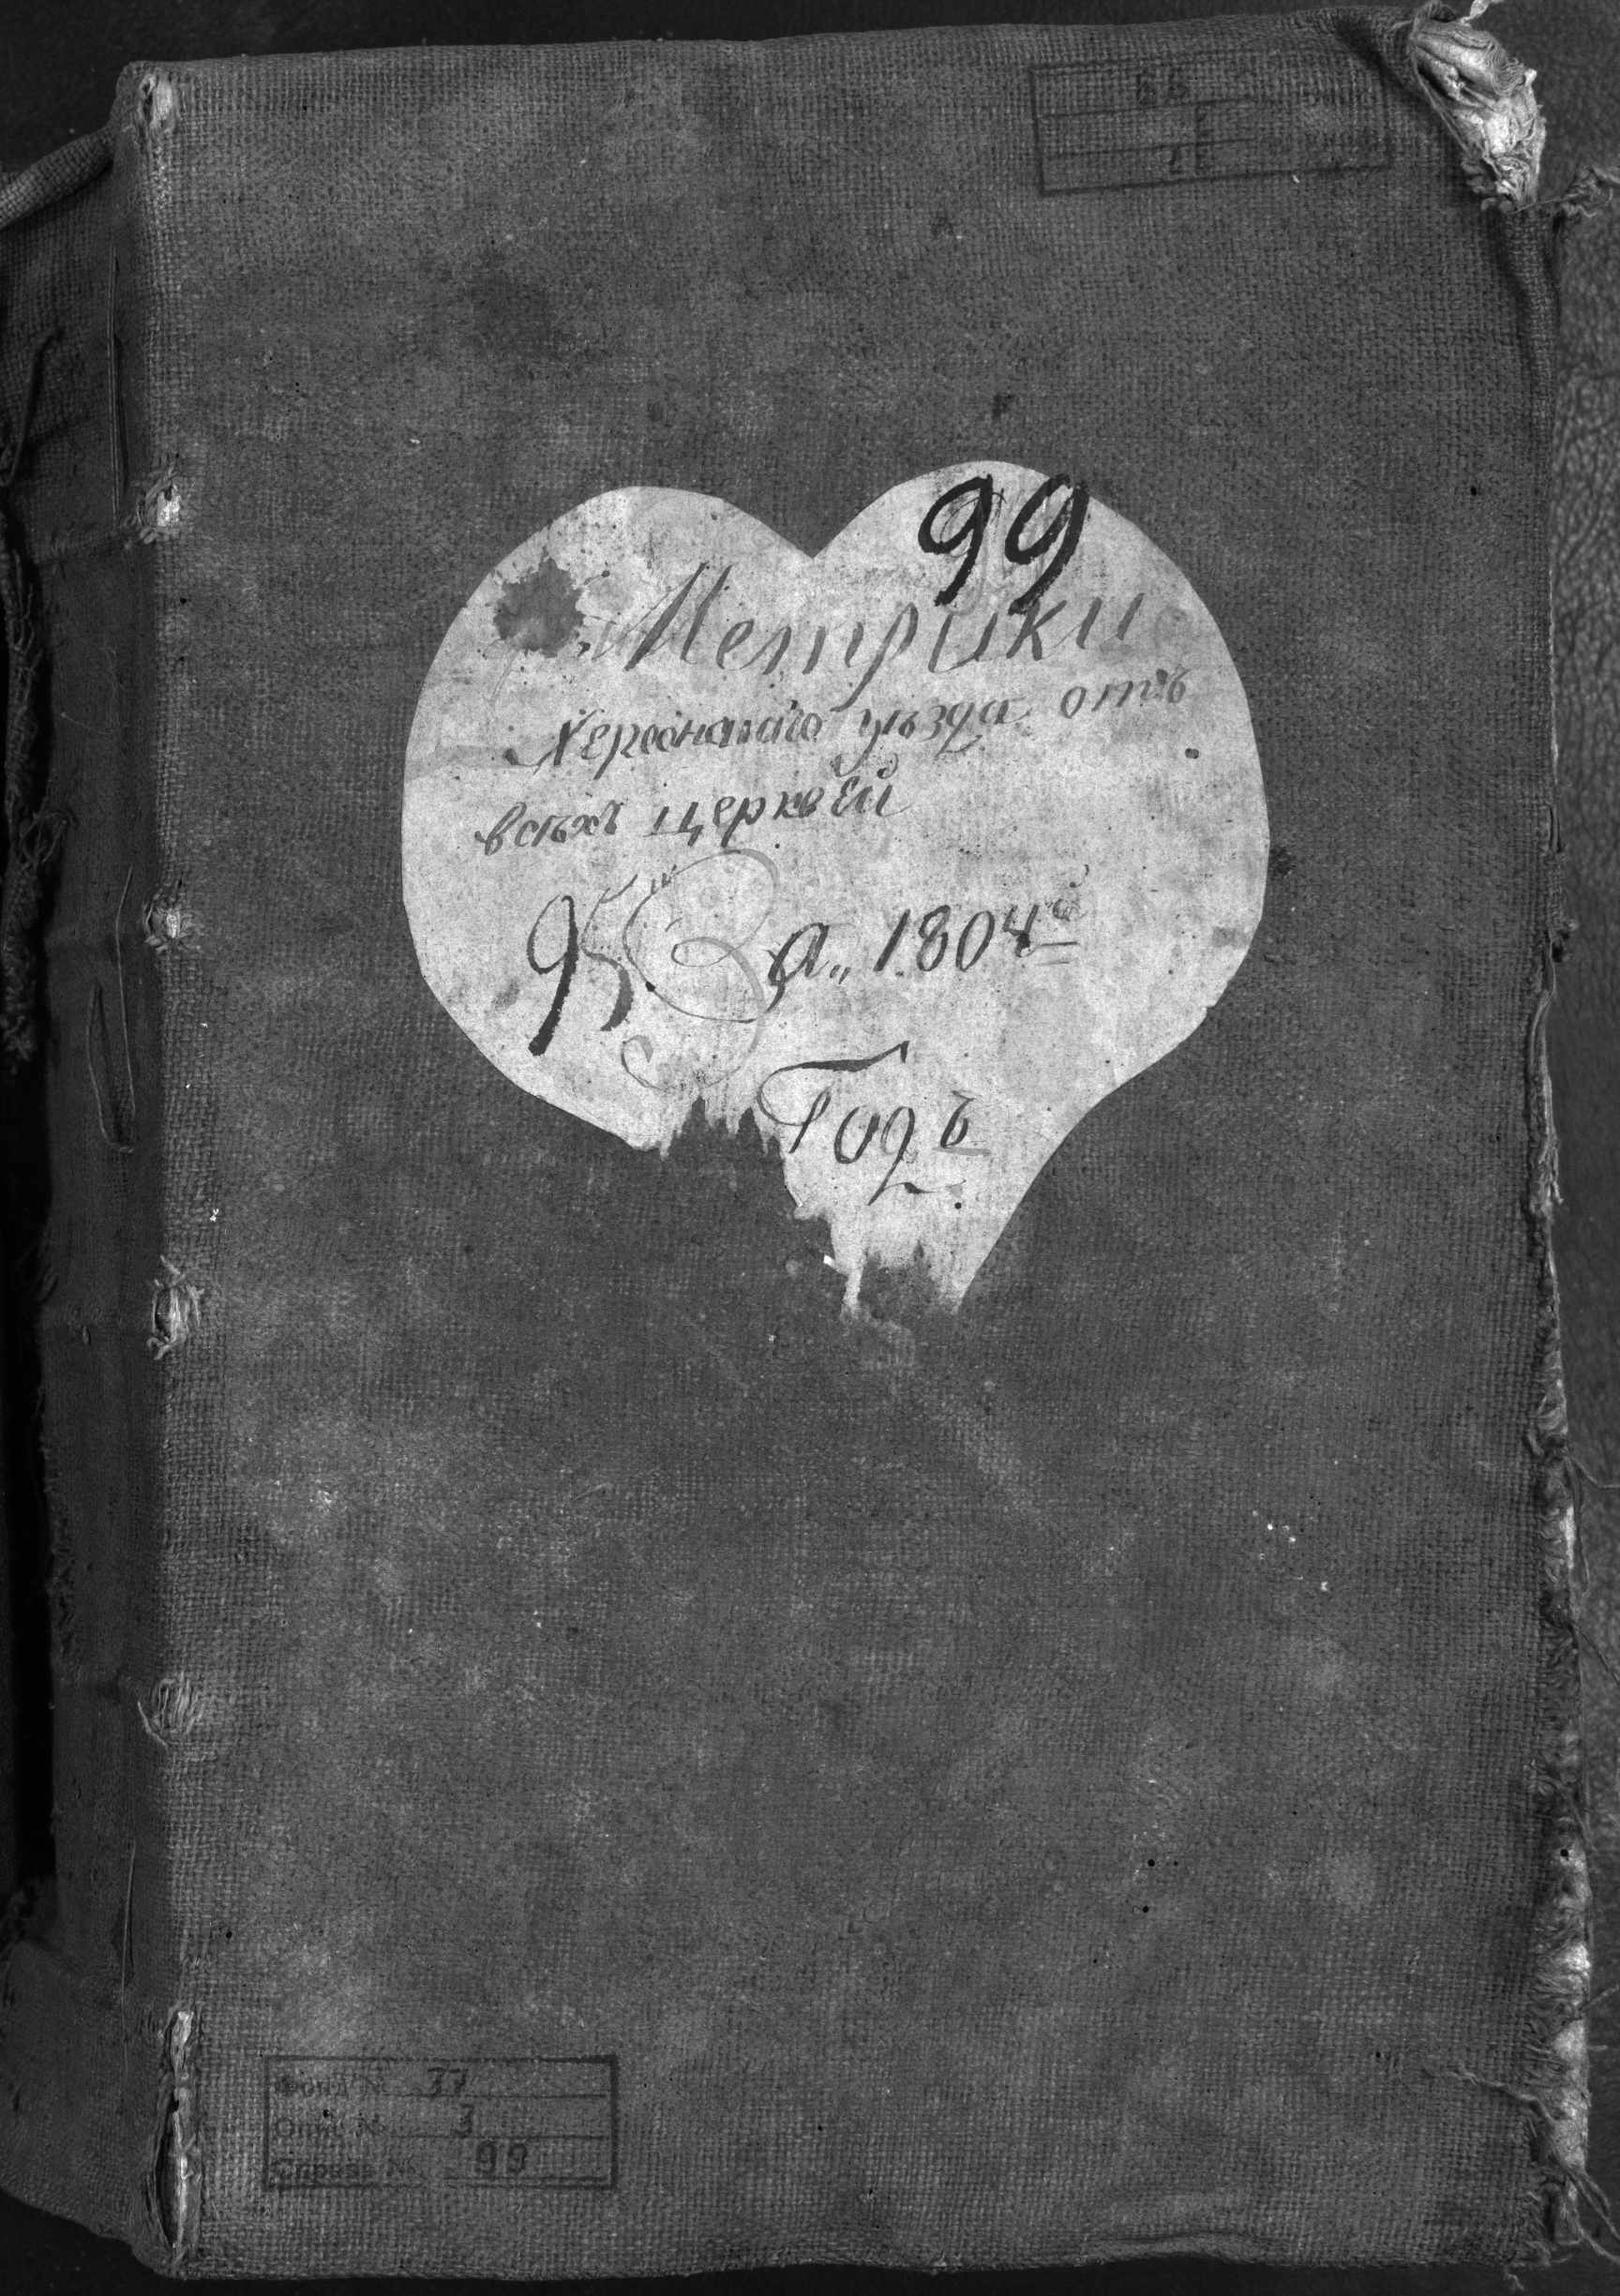 99
Метрики
Херсонскаго уѣзда отъ
всѣхъ церквей
95 За 1804й
Годъ
Фонд № 37
Опис № 3
Справа № 99